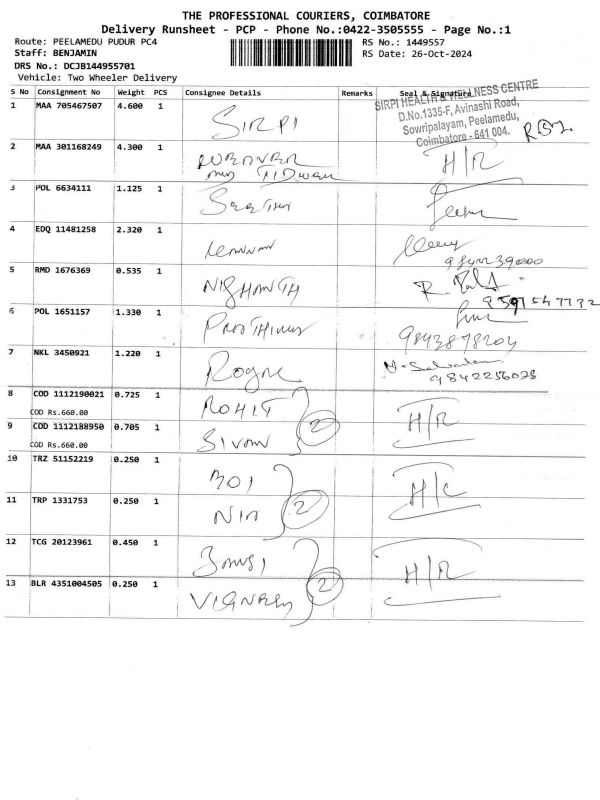 THE PROFESSIONAL COURIERS, COIMBATORE
Delivery Runsheet - PCP - Phone No.:0422-3505555 - Page No.:1
Route: PEELAMEDU PUDUR PC4
RS No.: 1449557
Staff: BENJAMIN
RS Date: 26-Oct-2024
DRS No.: DCJB144955701
Vehicle: Two Wheeler Delivery
S No Consignment No Weight PCS Consignee Details Remarks Seal & Signature
SIRPI HEALTH & WELLNESS CENTRE
D.No.1335-F, Avinashi Road,
Sowripalayam, Peelamedu,
Coimbatore - 641 004.
1 MAA 705467507 4.600 1 SIRPI
2 MAA 301168249 4.300 1 H/R
3 POL 6634111 1.125 1
4 EDQ 11481258 2.320 1 Kannan
5 RMD 1676369 0.535 1 NISHANTH
9591547732
6 POL 1651157 1.330 1
9843878204
7 NKL 3450921 1.220 1
9842256028
8 COD 1112190021 0.725 1 ROHIT
COD Rs.660.00
2 H/R
9 COD 1112188950 0.705 1 SIVAN
COD Rs.660.00
10 TRZ 51152219 0.250 1
2
11 TRP 1331753 0.250 1
12 TCG 20123961 0.450 1
2 H/R
13 BLR 4351004505 0.250 1 VIGNESH